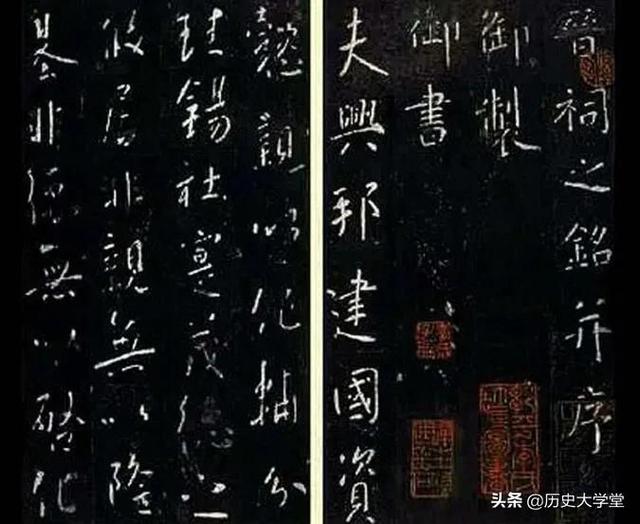 晉祠之銘并序
御製
御書
夫興邦建國資
懿親以作輔分
珪錫社寔茂德之
攸居非親無以隆
基非德無以啓化
头条 @历史大学堂